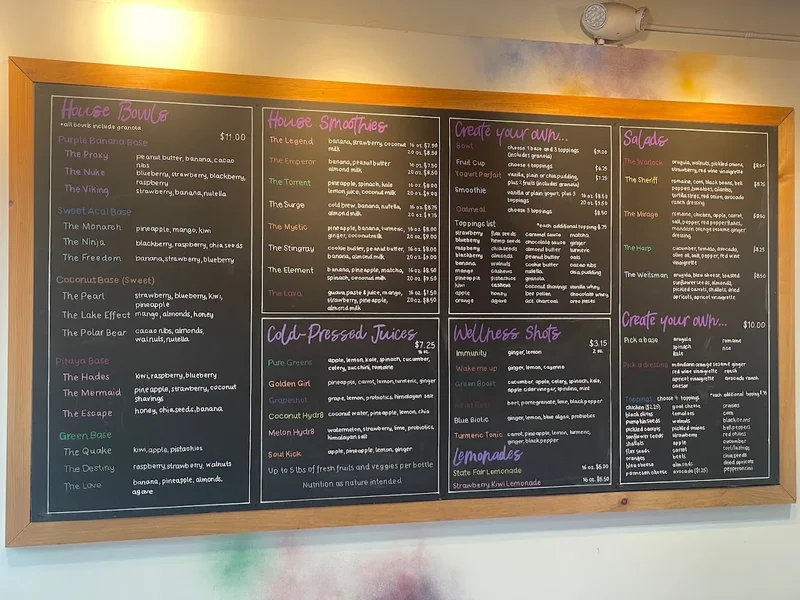 House Bowls
*all bowls include granola
$11.00
Purple Banana Base
The Proxy peanut butter, banana, cacao
nibs
The Nuke blueberry, strawberry, blackberry,
raspberry
The Viking strawberry, banana, nutella
Sweet Acai Base
The Monarch pineapple, mango, kiwi
The Ninja blackberry, raspberry, chia seeds
The Freedom banana, strawberry, blueberry
Coconut Base (Sweet)
The Pearl strawberry, blueberry, kiwi,
pineapple
The Lake Effect mango, almonds, honey
The Polar Bear cacao nibs, almonds,
walnuts, nutella
Pitaya Base
The Hades kiwi, raspberry, blueberry
The Mermaid pineapple, strawberry, coconut
shavings
The Escape honey, chia seeds, banana
Green Base
The Quake kiwi, apple, pistachios
The Destiny raspberry, strawberry, walnuts
The Love banana, pineapple, almonds,
agave
House Smoothies
The Legend banana, strawberry, coconut 16 oz. $7.50
milk 20 oz. $8.50
The Emperor banana, peanut butter 16 oz. $7.50
almond milk 20 oz. $8.50
The Torrent pineapple, spinach, kale 16 oz. $8.00
lemon juice, coconut milk 20 oz. $9.00
The Surge cold brew, banana, nutella,
almond milk
The Mystic pineapple, banana, turmeric, 16 oz. $8.00
ginger, coconut milk 20 oz. $9.00
The Stingray cookie butter, peanut butter, 16 oz. $8.00
banana, almond milk 20 oz. $9.00
The Element banana, pineapple, matcha, 16 oz. $8.50
spinach, almond milk
The Lava guava, paste & juice, mango, 16 oz. $7.50
strawberry, pineapple, 20 oz. $8.50
almond milk
Cold-Pressed Juices
$7.25
16 oz.
Pure Greens apple, lemon, kale, spinach, cucumber,
celery, zucchini, romaine
Golden Girl pineapple, carrot, lemon, turmeric, ginger
Grapeshot grape, lemon, probiotics, himalayan salt
Coconut Hydr8 coconut water, pineapple, lemon, chia
Melon Hydr8 watermelon, strawberry, lime, probiotics,
himalayan salt
Soul Kick apple, pineapple, lemon, ginger
Up to 5 lbs of fresh fruits and veggies per bottle
Nutrition as nature intended
Create your own...
Bowl choose 1 base and 3 toppings $11.00
(includes granola)
Fruit Cup choose 4 toppings $6.25
Yogurt Parfait vanilla, plain or chia pudding $7.25
plus 3 fruits (includes granola)
Smoothie vanilla or plain yogurt, plus 3 16 oz. $8.50
toppings 20 oz. $9.50
Oatmeal choose 3 toppings $8.50
Toppings list *each additional topping $.75
strawberry flax seeds caramel sauce matcha
blueberry hemp seeds chocolate sauce ginger
raspberry chia seeds almond butter turmeric
blackberry almonds peanut butter oats
banana walnuts cookie butter cacao nibs
mango cashews nutella chia pudding
pineapple pistachios granola
kiwi cashews coconut shavings vanilla whey
apple honey bee pollen chocolate whey
orange agave act. charcoal
Wellness Shots
$3.15
2 oz.
Immunity ginger, lemon
Wake me up ginger, lemon, cayenne
Green Boost cucumber, apple, celery, spinach, kale,
apple cider vinegar, spirulina, mint
beet, pomegranate, lime, black pepper
Blue Biotic ginger, lemon, blue algae, probiotics
Turmeric Tonic carrot, pineapple, lemon, turmeric,
ginger, black pepper
Lemonades
State Fair Lemonade 16 oz. $5.00
Strawberry Kiwi Lemonade 16 oz. $5.50
Salads
The Warlock arugula, walnuts, pickled onions,
strawberry, red wine vinaigrette
The Sheriff romaine, corn, black beans, bell $8.75
peppers, tomatoes, cilantro,
tortilla strips, red onion, avocado
ranch dressing
The Mirage romaine, chicken, apple, carrot,
salt, pepper, red pepper flakes,
mandarin orange sesame ginger
dressing
The Harp cucumber, tomato, avocado, $8.25
olive oil, salt, pepper, red wine
vinaigrette
The Weitsman arugula, bleu cheese, toasted $8.50
sunflower seeds, almonds,
pickled carrots, shallots, dried
apricots, apricot vinaigrette
Create your own... $10.00
Pick a base arugula romaine
spinach rice
kale
Pick a dressing mandarin orange sesame ginger
red wine vinaigrette ranch
apricot vinaigrette avocado ranch
caesar
Toppings choose 4 toppings *each additional topping $.75
chicken ($2.25) goat cheese craisins
black olives tomatoes corn
pumpkin seeds walnuts black beans
pickled carrots pickled onions bell peppers
sunflower seeds strawberry red onions
shallots apple cucumber
flax seeds carrot tortilla strips
oranges beets chia seeds
bleu cheese almonds dried apricots
parmesan cheese avocado ($1.25) pepperoncini